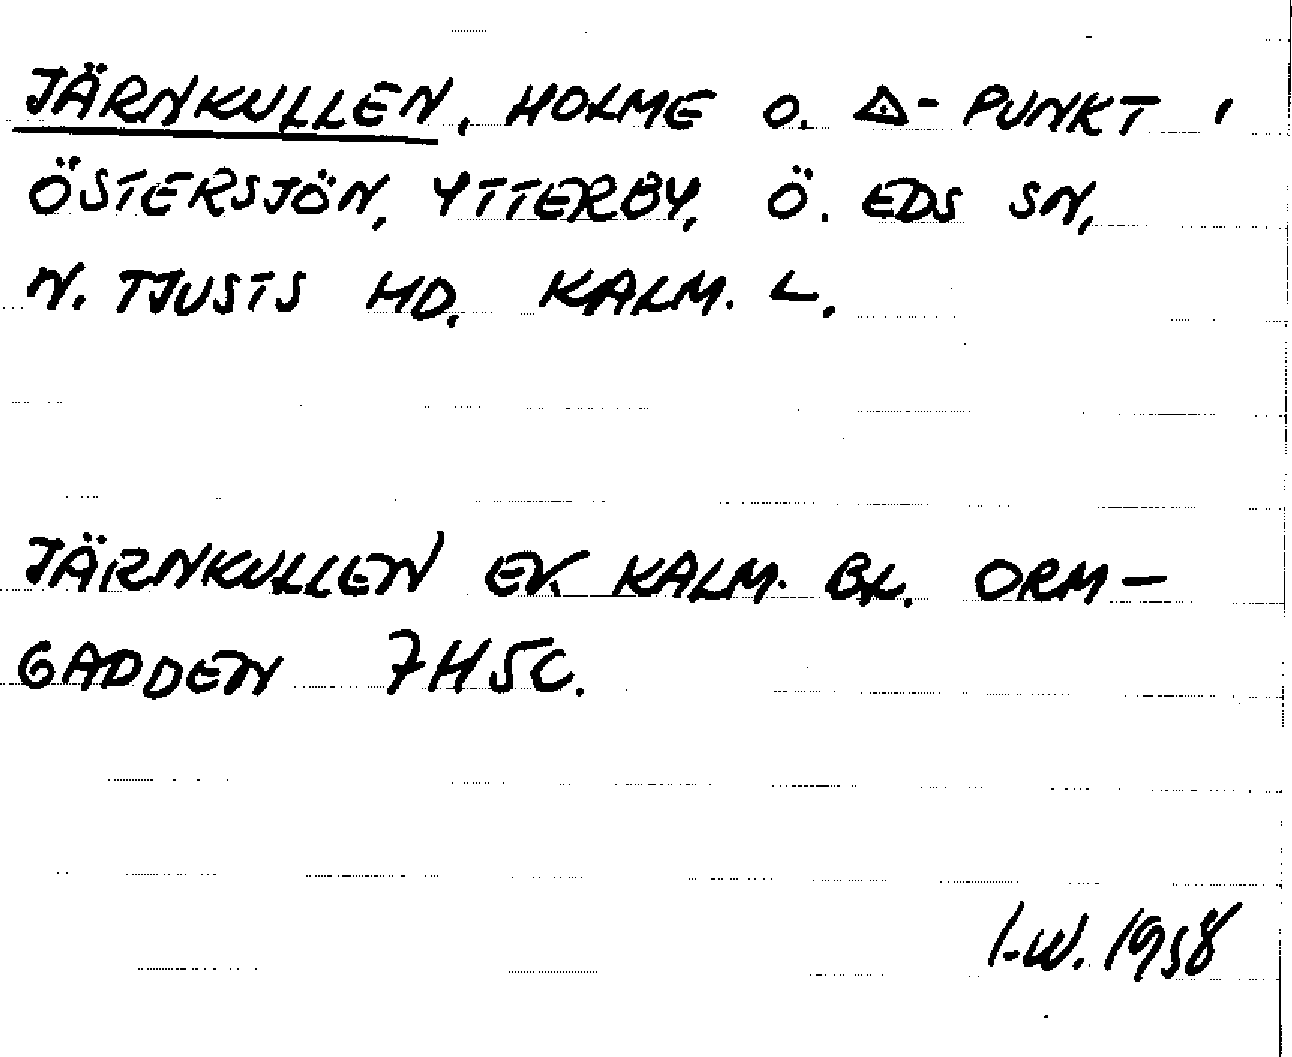 JÄRNKULLEN, HOLME O. △-PUNKT I
ÖSTERSJÖN, YTTERBY, Ö. EDS SN,
N. TJUSTS HD. KALM. L.
JÄRNKULLEN EK KALM. BL. ORM-
GADDEN 7H5C.
I.W. 1958